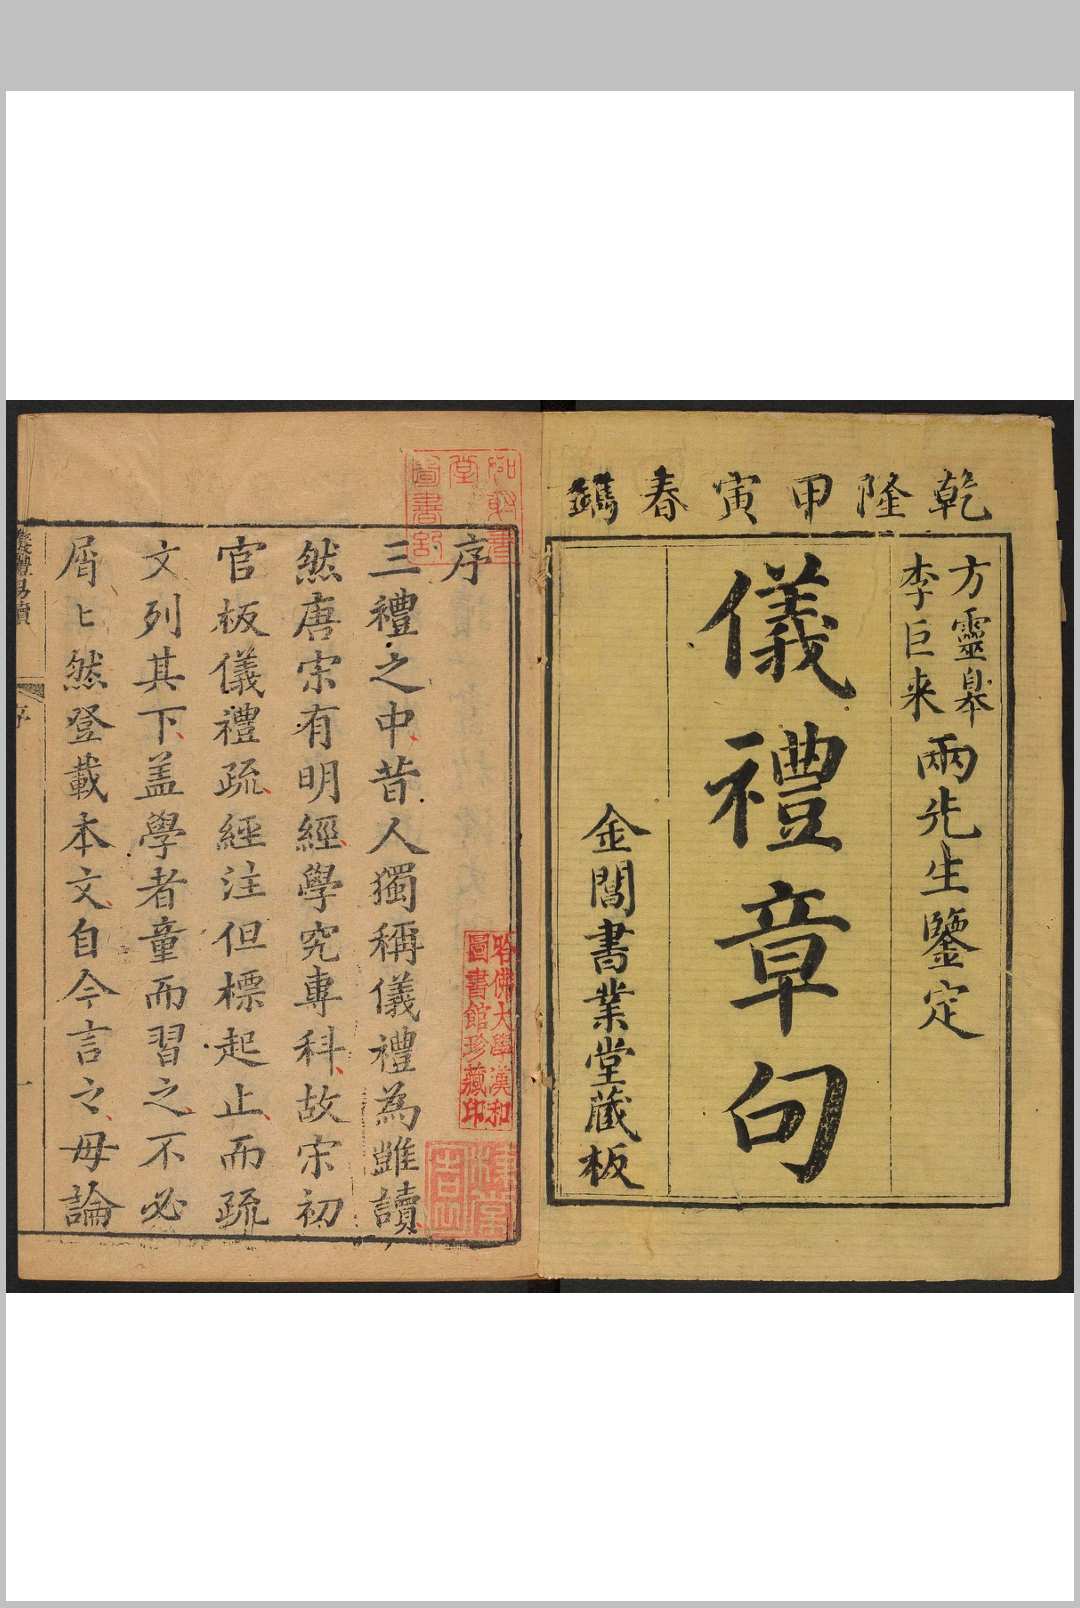 乾隆甲寅春鐫
方靈皋
李巨来
兩先生鑒定
儀禮章句
金閶書業堂藏板
序
三禮之中昔人獨稱儀禮為難讀
然唐宋有明經學究專科故宋初
官板儀禮疏經注但標起止而疏
文列其下盖學者童而習之不必
屑〻然登載本文自今言之毋論
儀禮易讀
序
一
哈佛大學漢和
圖書館珍藏印
圖書